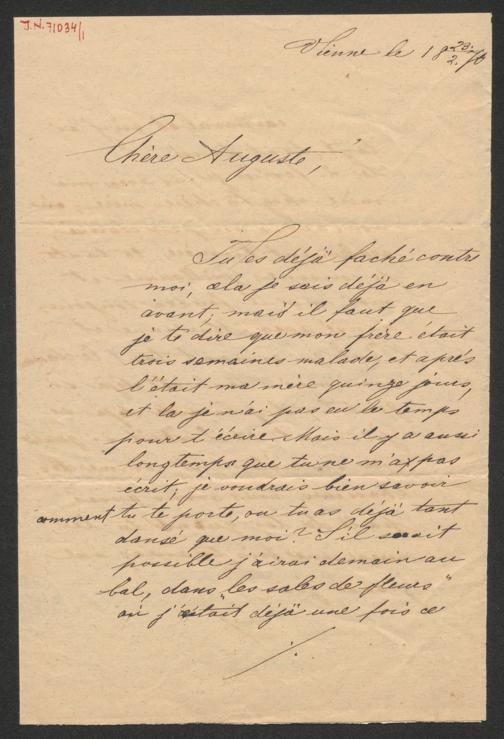 J.N. 71034/1
Vienne le 18 23./2. 76
Chère Auguste,
Tu es déjà faché contre
moi, cela je sais déjà en
avant; mais il faut que
je te dire que mon frère était
trois semaines malade, et après
l'était ma mère quinze jours,
et la je n'ai pas eu le temps
pour t'écrire. Mais il y a aussi
longtemps que tu ne m'as pas
écrit; je voudrais bien savoir
comment tu te porte, ou tu as déjà tant
dansé que moi? S'il serait
possible j'airai demain au
bal, dans "les sales de fleurs"
où j'était déjà une fois ce
./.